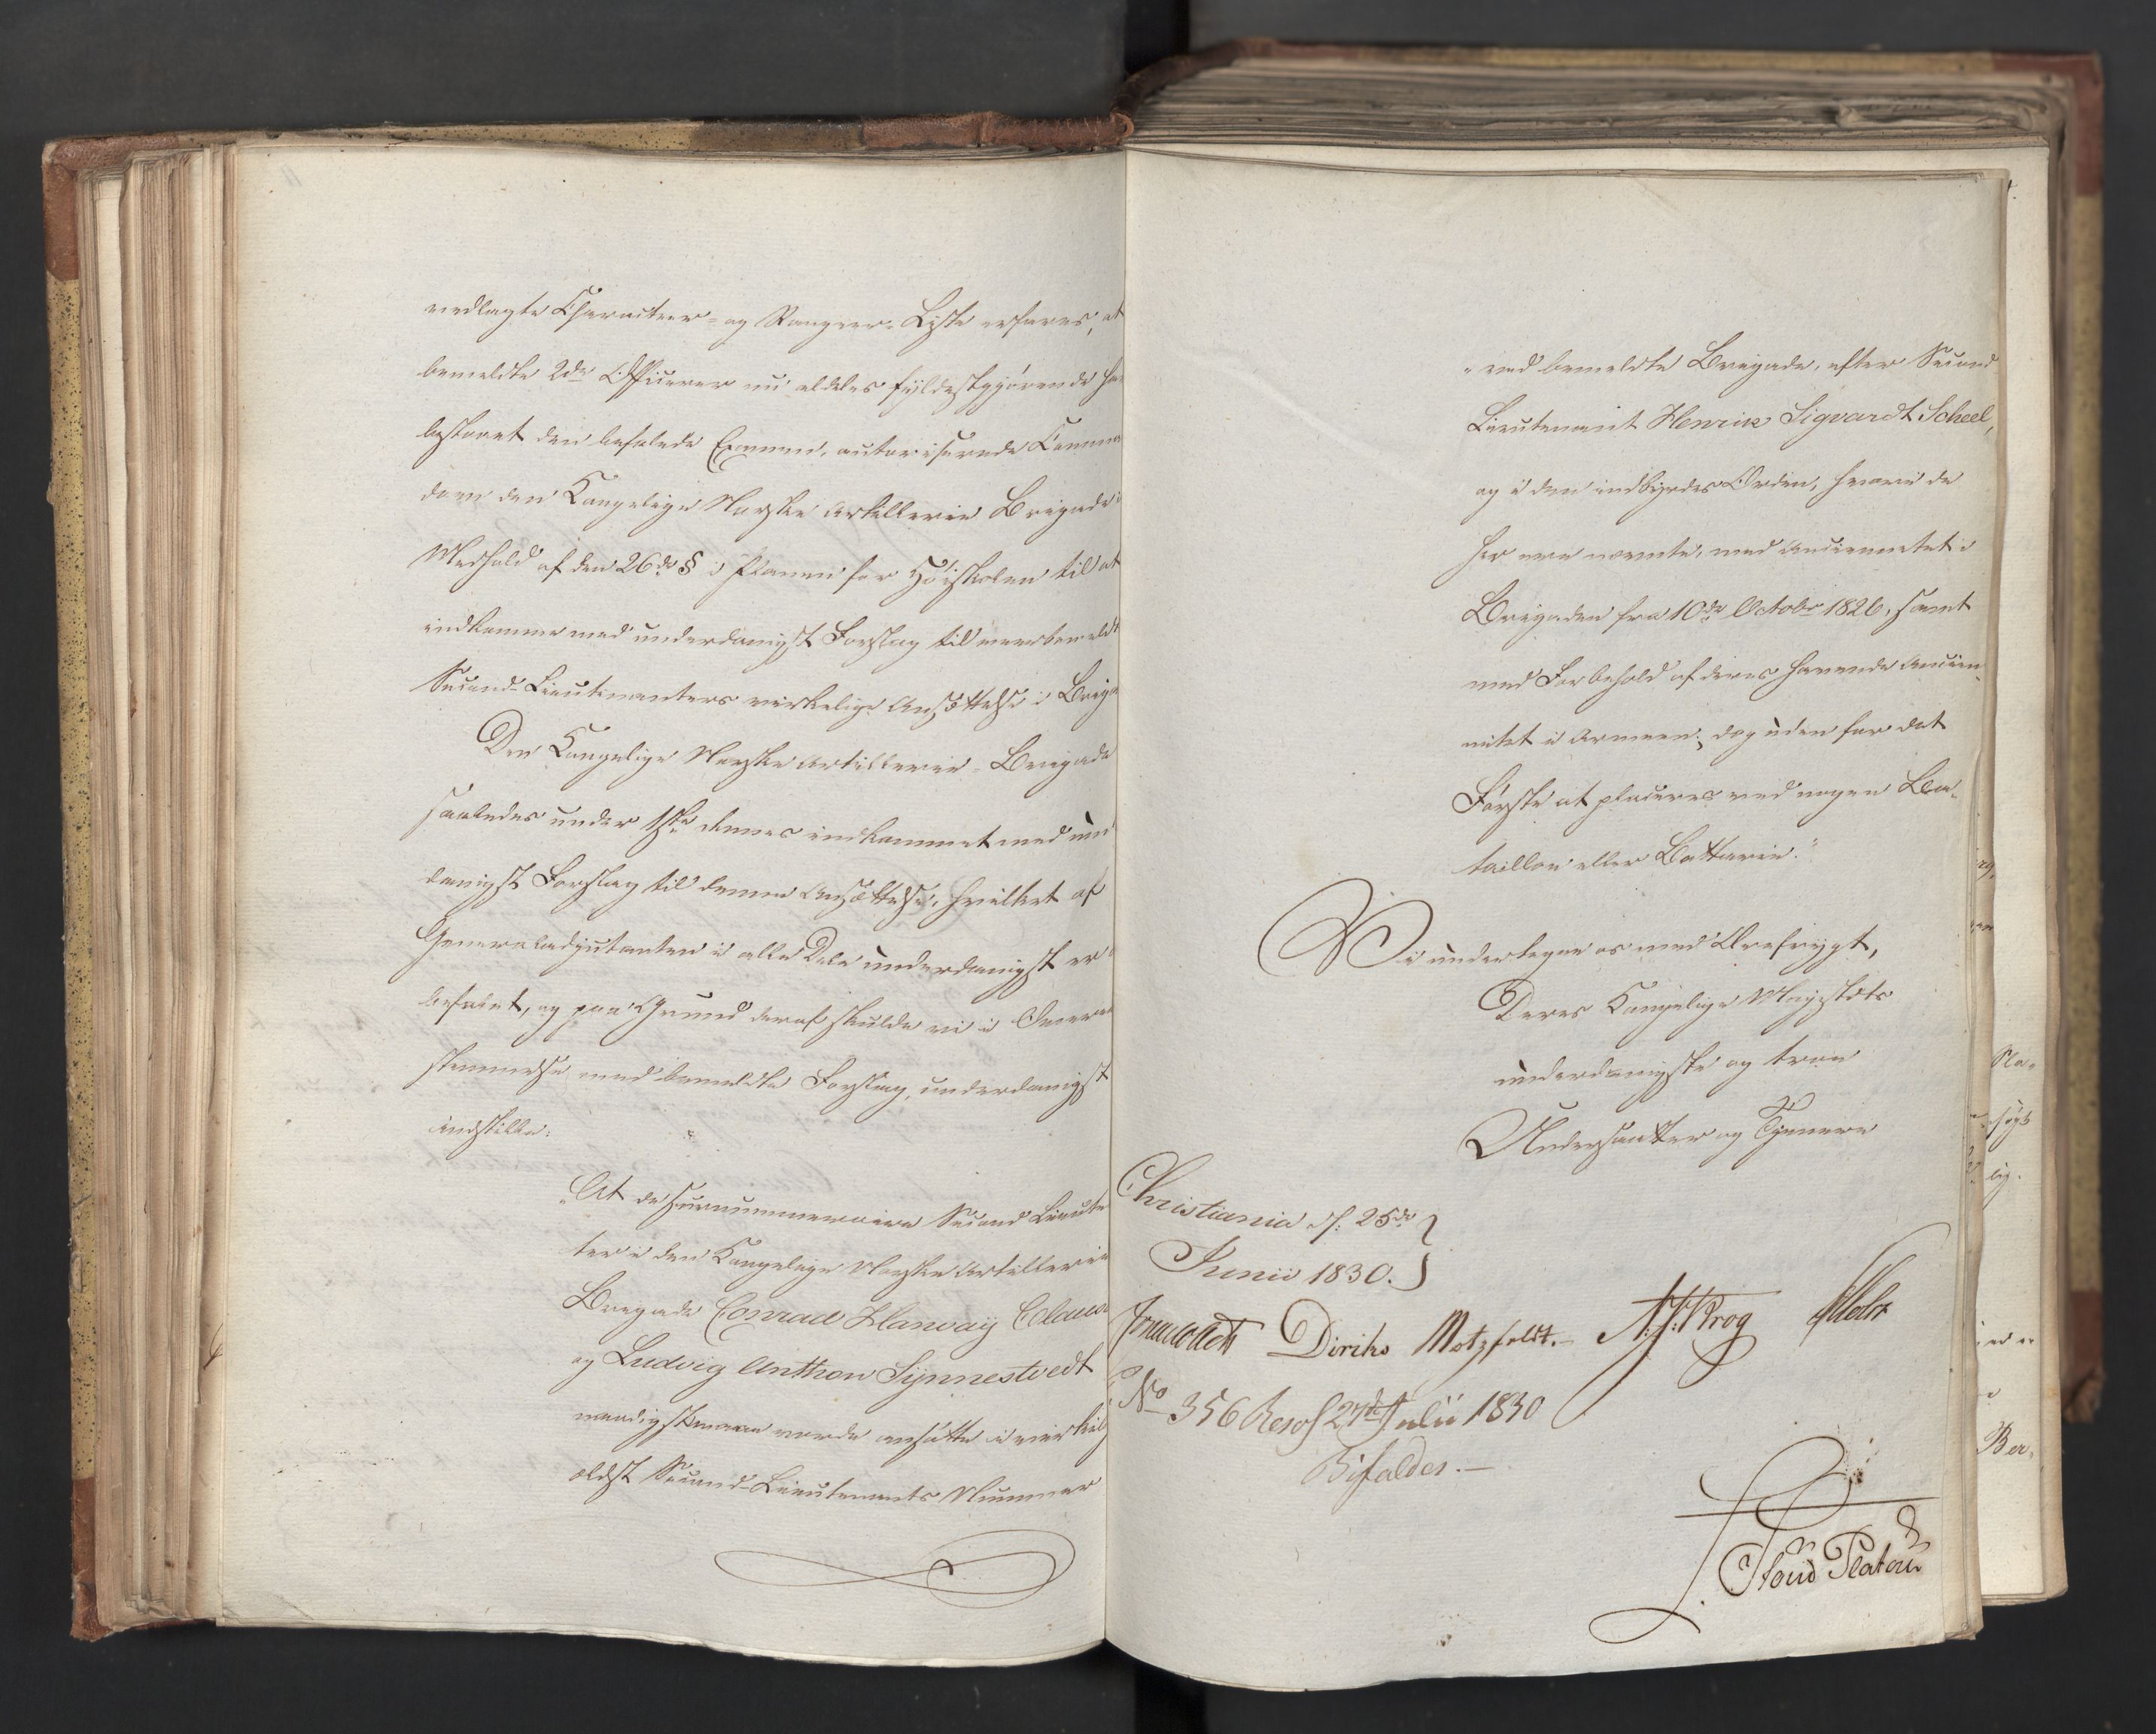 vedlagte Characteer- og Rangeer-Liste erfares, at
bemeldte 2de Officerer nu aldeles fyldestgjørende ha
bestaaet den befalede Examen, autoriserede Comman
doen den Kongelige Norske Artillerie Brigade i
Medhold af den 26de § i Planen for Høiskolen til at
indkomme med underdanigst Forslag til meerbemeldte
Second-Lieutenanters virkelige Ansættelse i Briga
Den Kongelige Norske Artillerie-Brigade
saaledes under 1ste dennes indkommet med un
danigst Forslag til denne Ansættelse, hvilket af
Generaladjutanten i alle Dele underdanigst er
befalet, og paa Grund deraf skulde vi i Overeens
stemmelse med bemeldte Forslag, underdanigst
indstille:
"At de surnummeraire Second Lieute
ter i den Kongelige Norske Artillerie
Brigade Conrad Hanway Claus
og Ludvig Anthon Synnestvedt
naadigst maae vorde ansatte i virkelig
ældst Second-Lieutenants Nummer
" ved bemeldte Brigade, efter Second
Lieutenant Henrik Sigvardt Scheel,
og i den indbyrdes Orden, hvori de
her ere nævnte, med Anciennetet i
Brigaden fra 10de Octobr 1826, samt
med Forbehold af deres havende Ancien-
nitet i Armeen; dog uden for det
Første at placeres ved nogen Ba-
taillon eller Batterie."
Vi undertegne os med Ærefrygt,
Deres Kongelige Majestæts
underdanigste og troe
Undersaatter og Tjenere
Christiania d: 25de
Junii 1830.
Jonas Collett Diriks Motzfeldt.- A. J. Krog
No 356 Resol 27de Julii 1830
Bifaldes.-
Stoud Platou